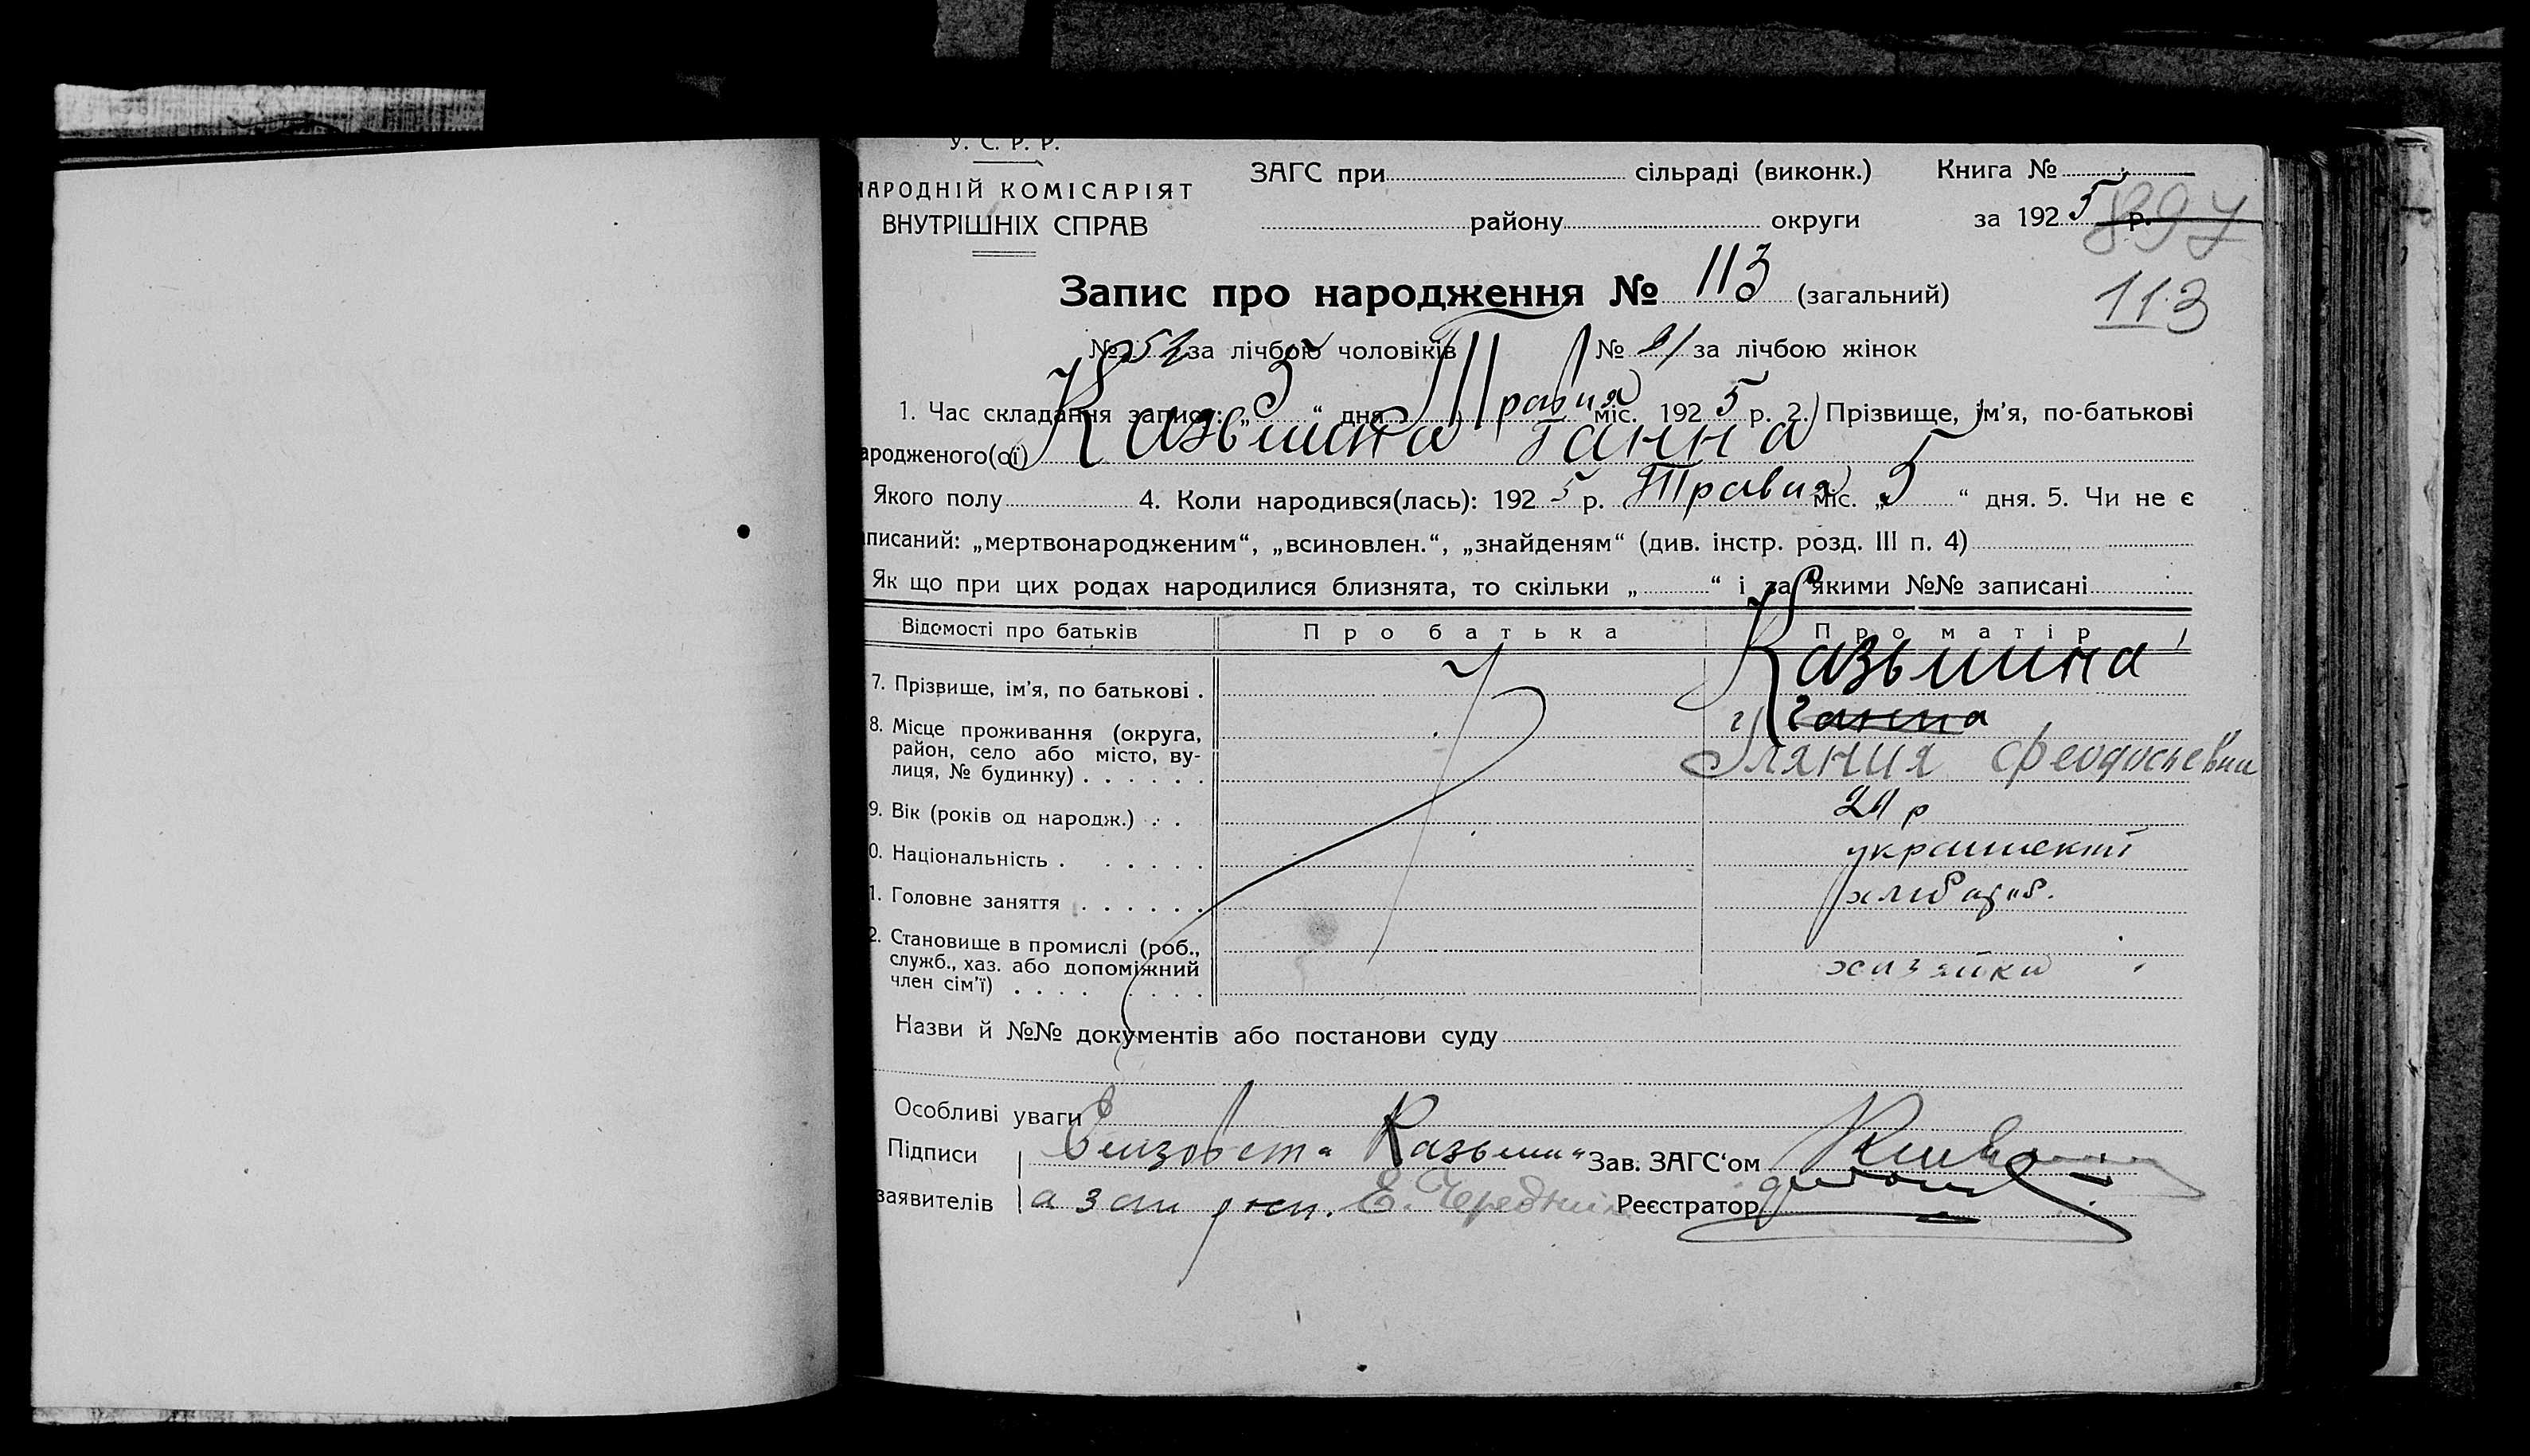 У. С. Р. Р.
НАРОДНІЙ КОМІСАРІЯТ
ВНУТРІШНІХ СПРАВ
ЗАГС при сільраді (виконк.) Книга №
району округи за 1925 р.
897
Запис про народження № 113 (загальний)
113
№ 52 за лічбою чоловіків № 61 за лічбою жінок
1. Час складання запису: „5“ дня Травня міс. 1925 р. 2. Прізвище, ім’я, по-батькові
ародженого(ої) Казьмина Ганна
Якого полу 4. Коли народився(лась): 1925 р. Травня міс. „5“ дня. 5. Чи не є
писаний: „мертвонародженим“, „всиновлен.“, „знайденям“ (див. інстр. розд. III п. 4)
Як що при цих родах народилися близнята, то скільки „ “ і за якими №№ записані
Відомості про батьків Про батька Про матір
7. Прізвище, ім’я, по батькові . Казьмина
Ганна
8. Місце проживання (округа,
район, село або місто, ву-
лиця, № будинку) . . . . . . Уляния Феодосьевна
9. Вік (років од народж.) . . 21 р
0. Національність . . . . . . українській
1. Головне заняття . . . . . . хлибороб.
2. Становище в промислі (роб.,
служб., хаз. або допоміжний
член сім’ї) . . . . . . . . хазяйка
Назви й №№ документів або постанови суду
Особливі уваги
Підписи Елизовета Казьмина Зав. ЗАГС‘ом
заявителів а за Е. Реєстратор